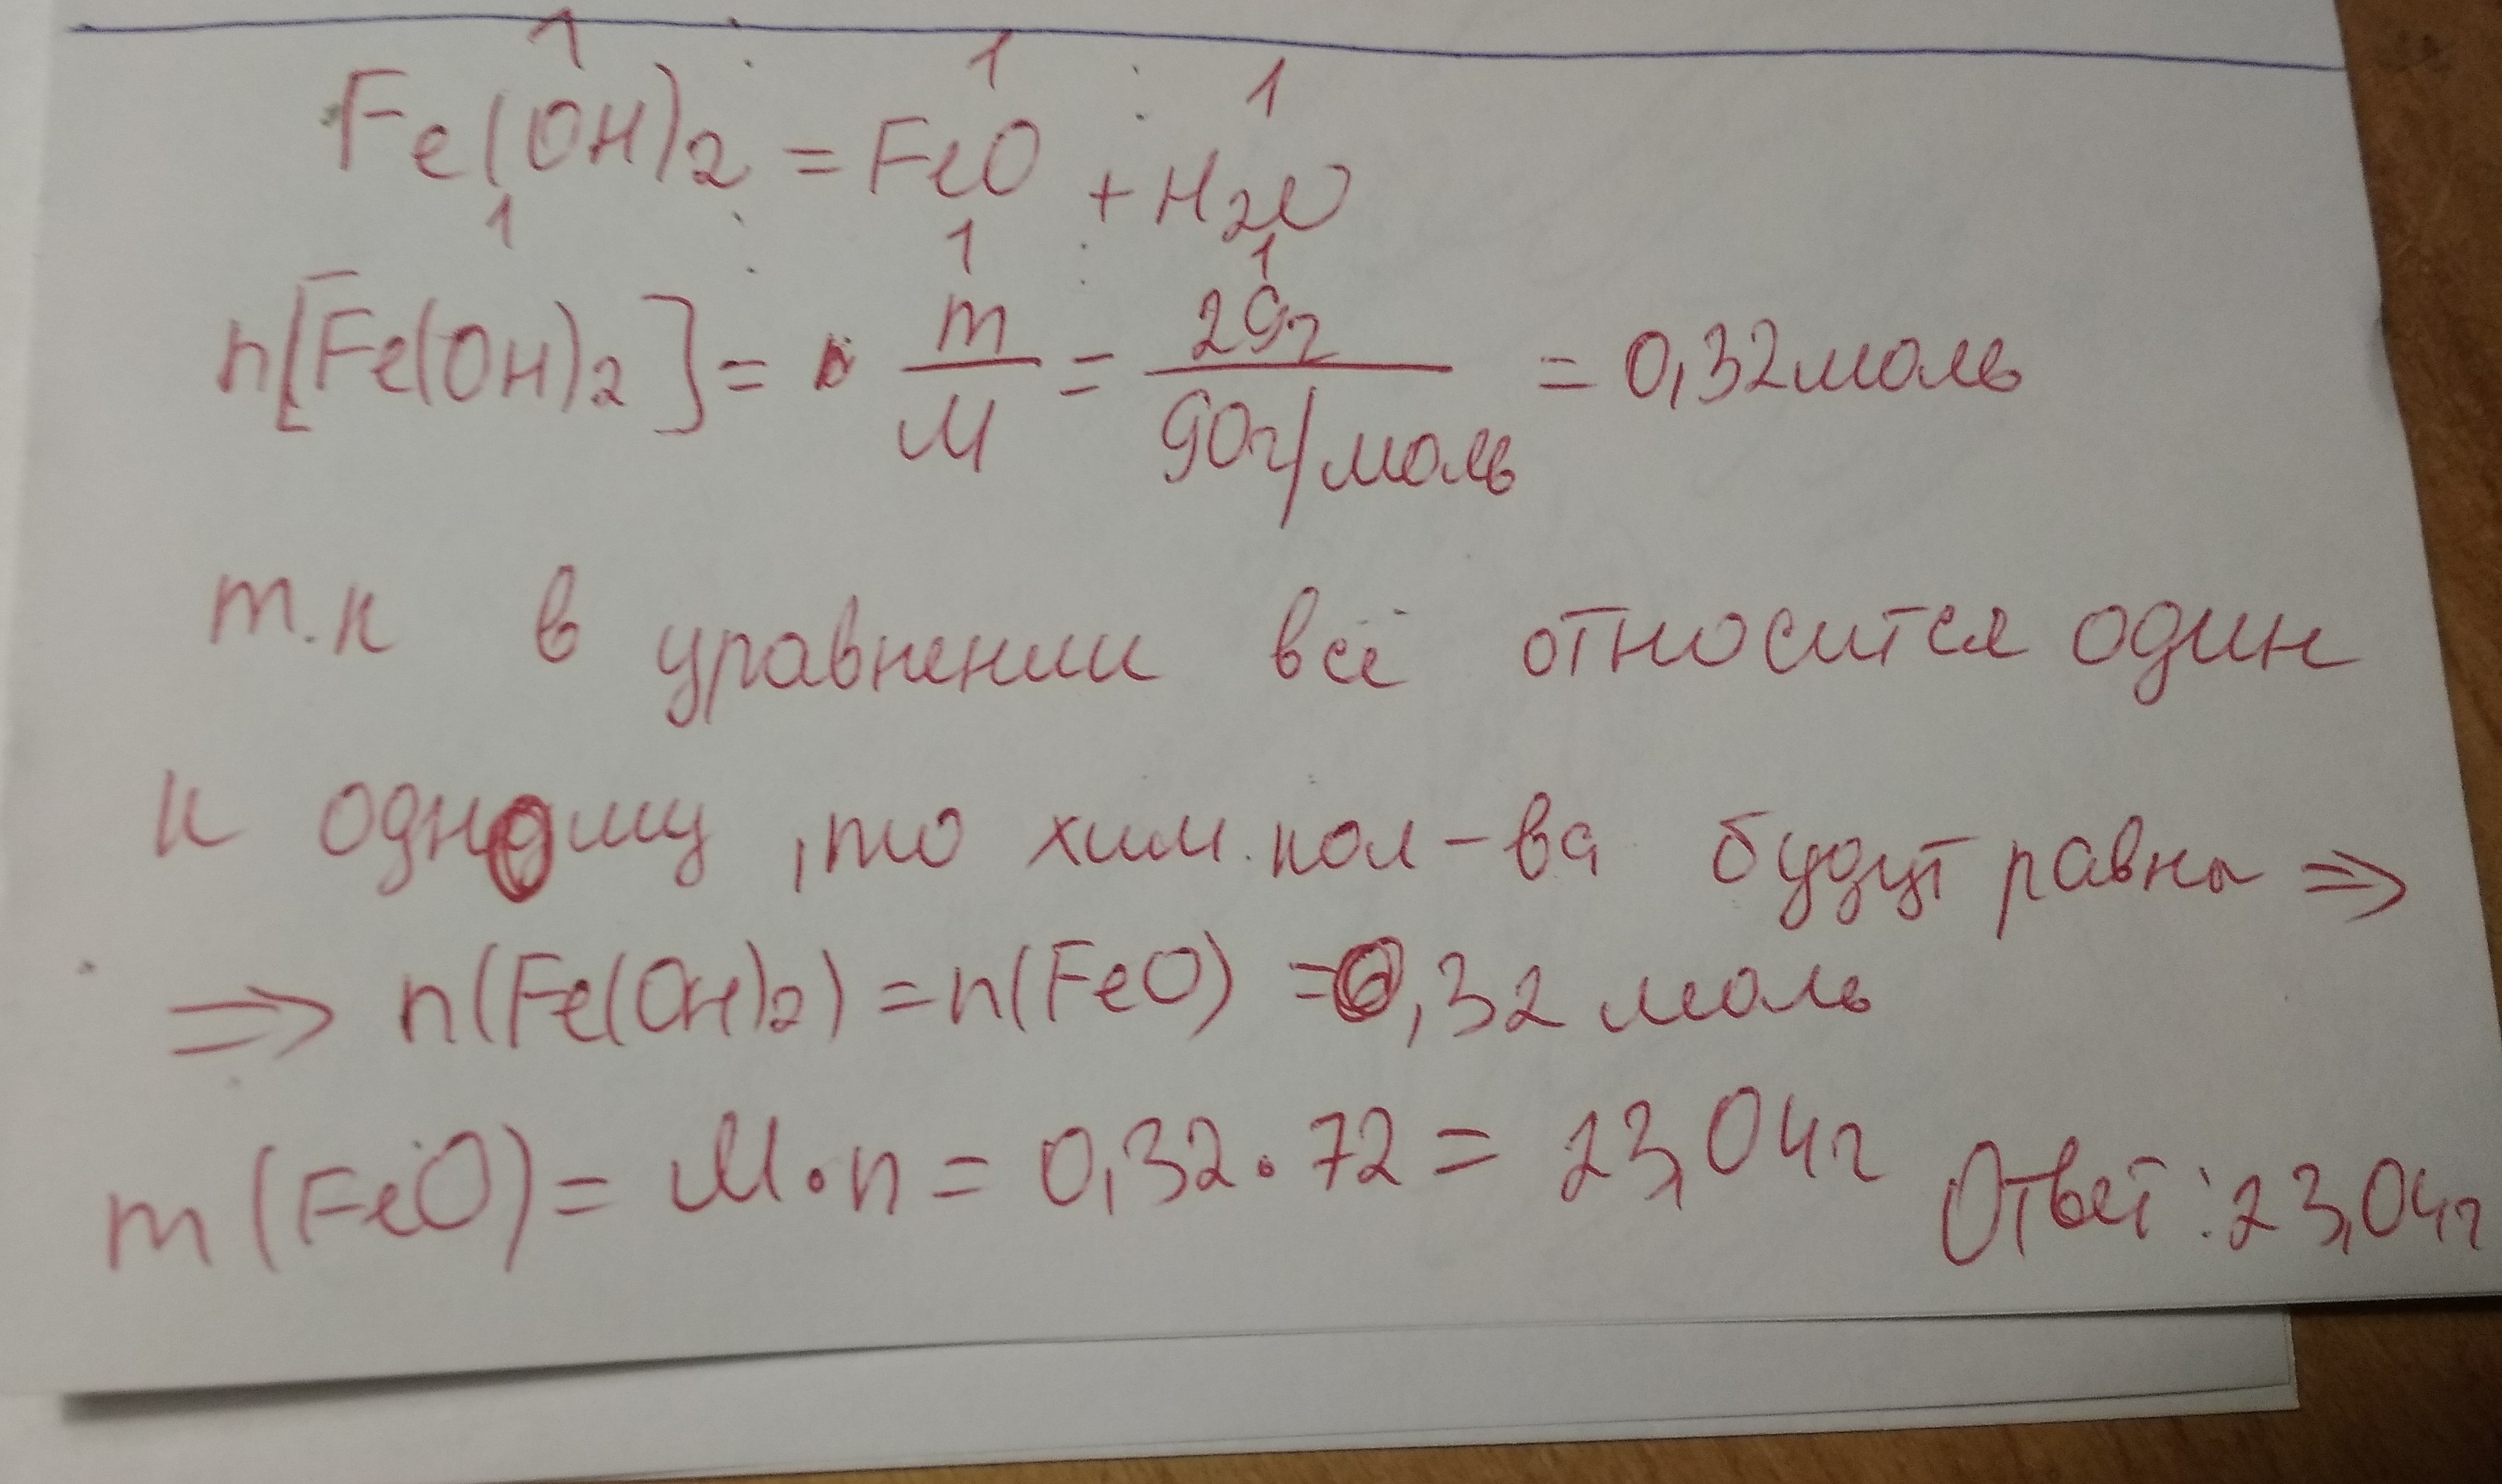 1 : 1 : 1
Fe(OH)2 = FeO + H2O
1 : 1 : 1
n[Fe(OH)2] = m/M = 29г/90г/моль = 0,32моль
т.к в уравнении всё относится один
к одному, то хим. кол-ва будут равны ⇒
⇒ n(Fe(OH)2) = n(FeO) = 0,32 моль
m(FeO) = M·n = 0,32·72 = 23,04г Ответ: 23,04г